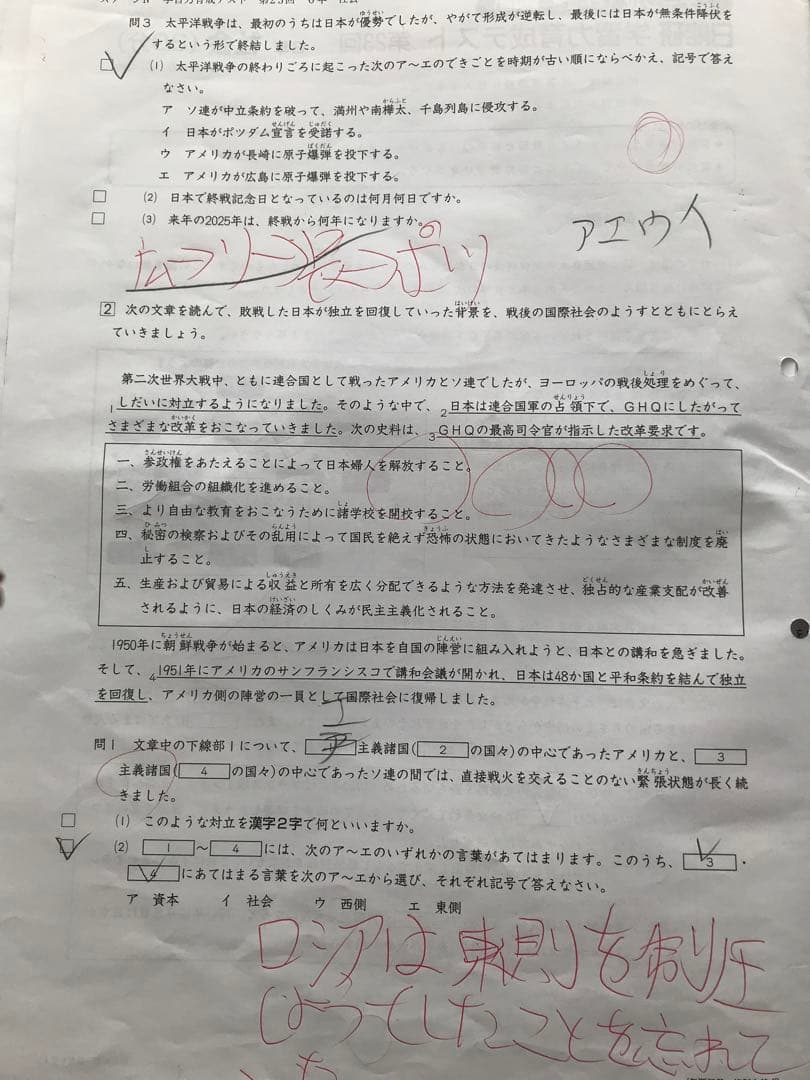 問3 太平洋戦争は、最初のうちは日本が優勢でしたが、やがて形成が逆転し、最後には日本が無条件降伏を
するという形で終結しました。
(1) 太平洋戦争の終わりごろに起こった次のア〜エのできごとを時期が古い順にならべかえ、記号で答え
なさい。
ア ソ連が中立条約を破って、満州や南樺太、千島列島に侵攻する。
イ 日本がポツダム宣言を受諾する。
ウ アメリカが長崎に原子爆弾を投下する。
エ アメリカが広島に原子爆弾を投下する。
(2) 日本で終戦記念日となっているのは何月何日ですか。
(3) 来年の2025年は、終戦から何年になりますか。
アエウイ
2 次の文章を読んで、敗戦した日本が独立を回復していった背景を、戦後の国際社会のようすとともにとらえ
ていきましょう。
第二次世界大戦中、ともに連合国として戦ったアメリカとソ連でしたが、ヨーロッパの戦後処理をめぐって、
1しだいに対立するようになりました。そのような中で、2日本は連合国軍の占領下で、GHQにしたがって
さまざまな改革をおこなっていきました。次の史料は、3GHQの最高司令官が指示した改革要求です。
一、参政権をあたえることによって日本婦人を解放すること。
二、労働組合の組織化を進めること。
三、より自由な教育をおこなうために諸学校を開校すること。
四、秘密の検察およびその乱用によって国民を絶えず恐怖の状態においてきたようなさまざまな制度を廃
止すること。
五、生産および貿易による収益と所有を広く分配できるような方法を発達させ、独占的な産業支配が改善
されるように、日本の経済のしくみが民主主義化されること。
1950年に朝鮮戦争が始まると、アメリカは日本を自国の陣営に組み入れようと、日本との講和を急ぎました。
そして、4 1951年にアメリカのサンフランシスコで講和会議が開かれ、日本は48か国と平和条約を結んで独立
を回復し、アメリカ側の陣営の一員として国際社会に復帰しました。
問1 文章中の下線部1について、1主義諸国(2の国々)の中心であったアメリカと、3
主義諸国(4の国々)の中心であったソ連の間では、直接戦火を交えることのない緊張状態が長く続
きました。
(1) このような対立を漢字2字で何といいますか。
(2) 1〜4には、次のア〜エのいずれかの言葉があてはまります。このうち、3・
4にあてはまる言葉を次のア〜エから選び、それぞれ記号で答えなさい。
ア 資本 イ 社会 ウ 西側 エ 東側
ロシアは東側を制圧
しようてしたことを忘れて
いた